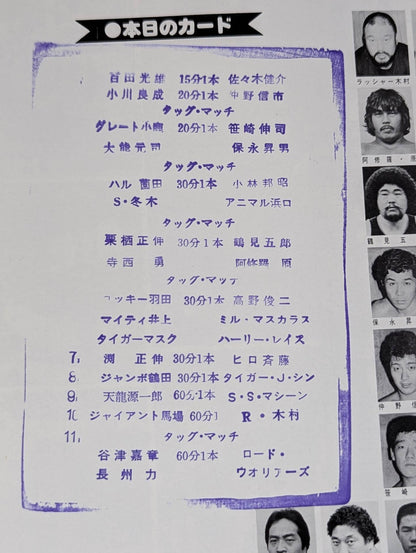 ●本日のカード
百田光雄 15分1本 佐々木健介
小川良成 20分1本 中野信市
タッグ・マッチ
グレート小鹿 20分1本 笹崎伸司
大熊元司 保永昇男
タッグ・マッチ
ハル薗田 30分1本 小林邦昭
S・冬木 アニマル浜口
タッグ・マッチ
栗栖正伸 30分1本 鶴見五郎
寺西 勇 阿修羅 原
タッグ・マッチ
ロッキー羽田 30分1本 高野俊二
マイティ井上 ミル・マスカラス
タイガーマスク ハーリー・レイス
7. 渕 正伸 30分1本 ヒロ斉藤
8. ジャンボ鶴田 30分1本 タイガー・J・シン
9. 天龍源一郎 60分1本 S・S・マシーン
10. ジャイアント馬場 60分1 R・木村
11. タッグ・マッチ
谷津嘉章 60分1本 ロード・
長州 力 ウオリアーズ
ラッシャー木村
阿修羅・原
鶴見五
保永昇
仲野信
笹崎